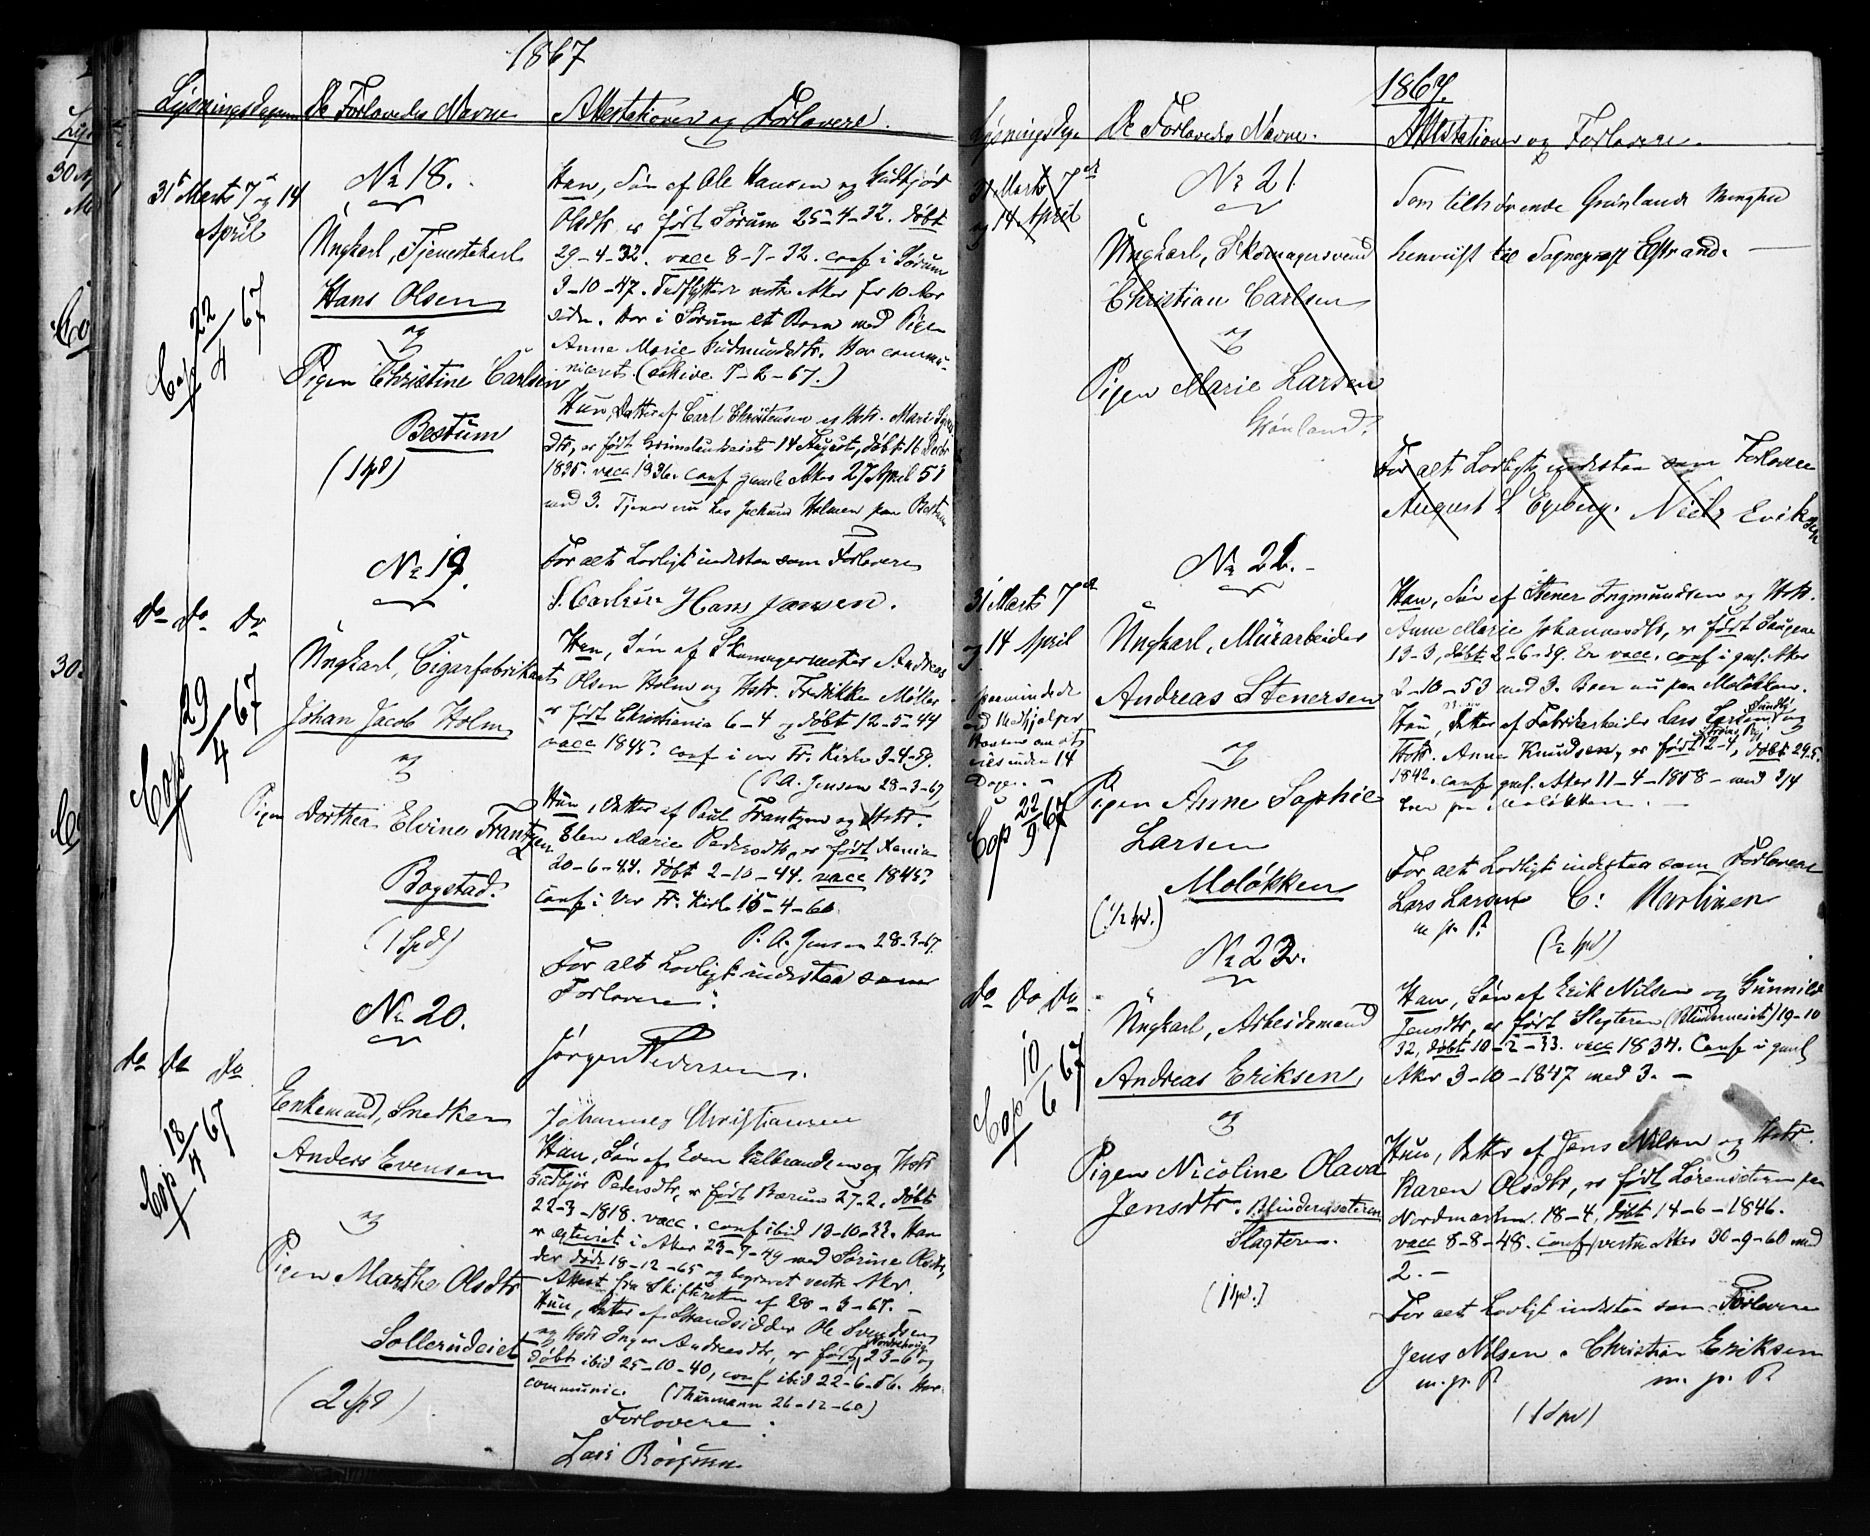 1867
Lysningsdagene De Forlovedes Navne Attestationer og Forlovere.
31te Marts 7de og 14
April
Cop 22/4 67
No 18.
Ungkarl, Tjenestekarl
Hans Olsen
og
Pigen Christine Carlsen
Bestum
(1 spd)
Han, Søn af Ole Hansen og Gudbjør
Olsdtr. er født Sørum 25-4-32. døbt
29-4-32. vacc 8-7-32. conf i Sørum
3-10-47. Tilflyttet vestre Aker for 10 Aar
siden. Har i Sørum et Barn med Pigen
Anne Marie Gudmundsdtr. Har commu-
niceret. 7-2-67.)
Hun, Datter af Carl Christensen og Hstr. Marie
dtr, er født 14 August, døbt 16 Decbr
1835. vacc 1936. conf gamle Aker 27 April 51
med 3. Tjener nu hos Holmen paa Bestum
For alt Lovligt indestaa som Forlovere
S. Carlsen Hans Jansen.
do do do
Cop 29/4 67
No 19.
Ungkarl, Cigarfabrikant
Johan Jacob Holm
og
Pigen Dorthea Elvine Frantzen
Bogstad.
(1 Spd)
Han, Søn af Skomagermester Andreas
Olsen Holm og Hstr. Fredrikke Møller
er født Christiania 6-4 og døbt 12-5-44
vacc 1845. conf i vor Fr. Kirke 3-4-59.
(P. A. Jensen 28-3-67)
Hun, Datter af Paul Frantzen og Hstr.
Elen Marie Pedersdtr, er født Xania
20-6-44. døbt 2-10-44. vacc 1845.
Conf i Vor Fr. Kirke 15-4-60
P. A. Jensen 28-3-67.
For alt Lovligt indestaa som
Forlovere:
Jørgen Pedersen.
Johannes Christiansen
do do do
Cop 18/4 67
No 20.
Enkemand, Snedker
Anders Evensen
og
Pigen Marthe Olsdtr
Sollerudeiet
(2 spd)
Han, Søn af Even Gulbrandsen og Hstr
Gudbjør Pedersdtr, er født Bærum 27-2, døbt
22-3-1818. vacc. conf ibid 13-10-33. Han
er egteviet i Aker 23-7-49 med Sørine Olsdtr,
der døde 18-12-65 og begravet vestre Aker.
Attest fra Skifteretten af 28-3-67.
Hun, Datter af Strandsidder Ole Svendsen
og Hstr Inger Andreasdtr, er født 23-6 og
døbt ibid 25-10-40, conf ibid 22-6-56. Har
communic. (Thurmann 26-12-60)
Forlovere:
Lars Børgsen
1867.
Lysningsdage De Forlovedes Navne. Attestationer og Forlovere.
31 Marts 7de
og 14 April
No 21
Ungkarl, Skomagersvend
Christian Carlsen
og
Pigen Marie Larsen
Grønland.
Som tilhørende Grønlands Menighed
henvist til Sogneprest Estrand.
For alt Lovligt indestaa som Forlovere
August L Egeberg. Niels Eriksen
31 Marts 7de
og 14 April
Medhjelper
Hansen om at
inden 14
Dage.
Cop 22/9 67
No 22.
Ungkarl, Murarbeider
Andreas Stenersen
og
Pigen Anne Sophie
Larsen
Moløkken
(½ spd.)
Han, Søn af Stener Ingmundsen og Hstr.
Anne Marie Johannesdtr, er født Saugene
13-3, døbt 2-6-39. Er vacc. conf i gml. Aker
2-10-53 med 3. Boer nu paa Moløkken.
Hun, Datter af Fabrikarbeider Lars Larsen og
Hstr. Anne Knudsen, er født 12-4, døbt 29-5
1842. conf gml. Aker 11-4-1858 - med 3/4
boer paa Moløkken.
For alt Lovligt indestaa som Forlovere
Lars Larsen C: Martinsen
m. p. P.
(½ spd)
do do do
Cop 10/6 67
No 23.
Ungkarl, Arbeidsmand
Andreas Eriksen,
og
Pigen Nicoline Olava
Jensdtr. Blindernsæteren
Slagteren.
(1 spd.)
Han, Søn af Erik Nilsen og Gunnild
Jensdtr, er født Slagteren (Blinderneiet) 19-10
32, døbt 10-2-33. vacc 1834. Conf i gaml
Aker 3-10-1847 med 3. -
Hun, Datter af Jens Nilsen og Hstr.
Karen Olsdtr, er født Lørensæteren paa
Nordmarken. 18-4, døbt 14-6-1846.
vacc 8-8-48. conf vestre Aker 30-9-60 med
2. -
For alt Lovligt indestaa som Forlovere
Jens Nilsen. Christian Eriksen
m. p. P. m. p. P.
(1 Spd)